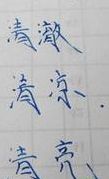 清澈
清凉.
清亮